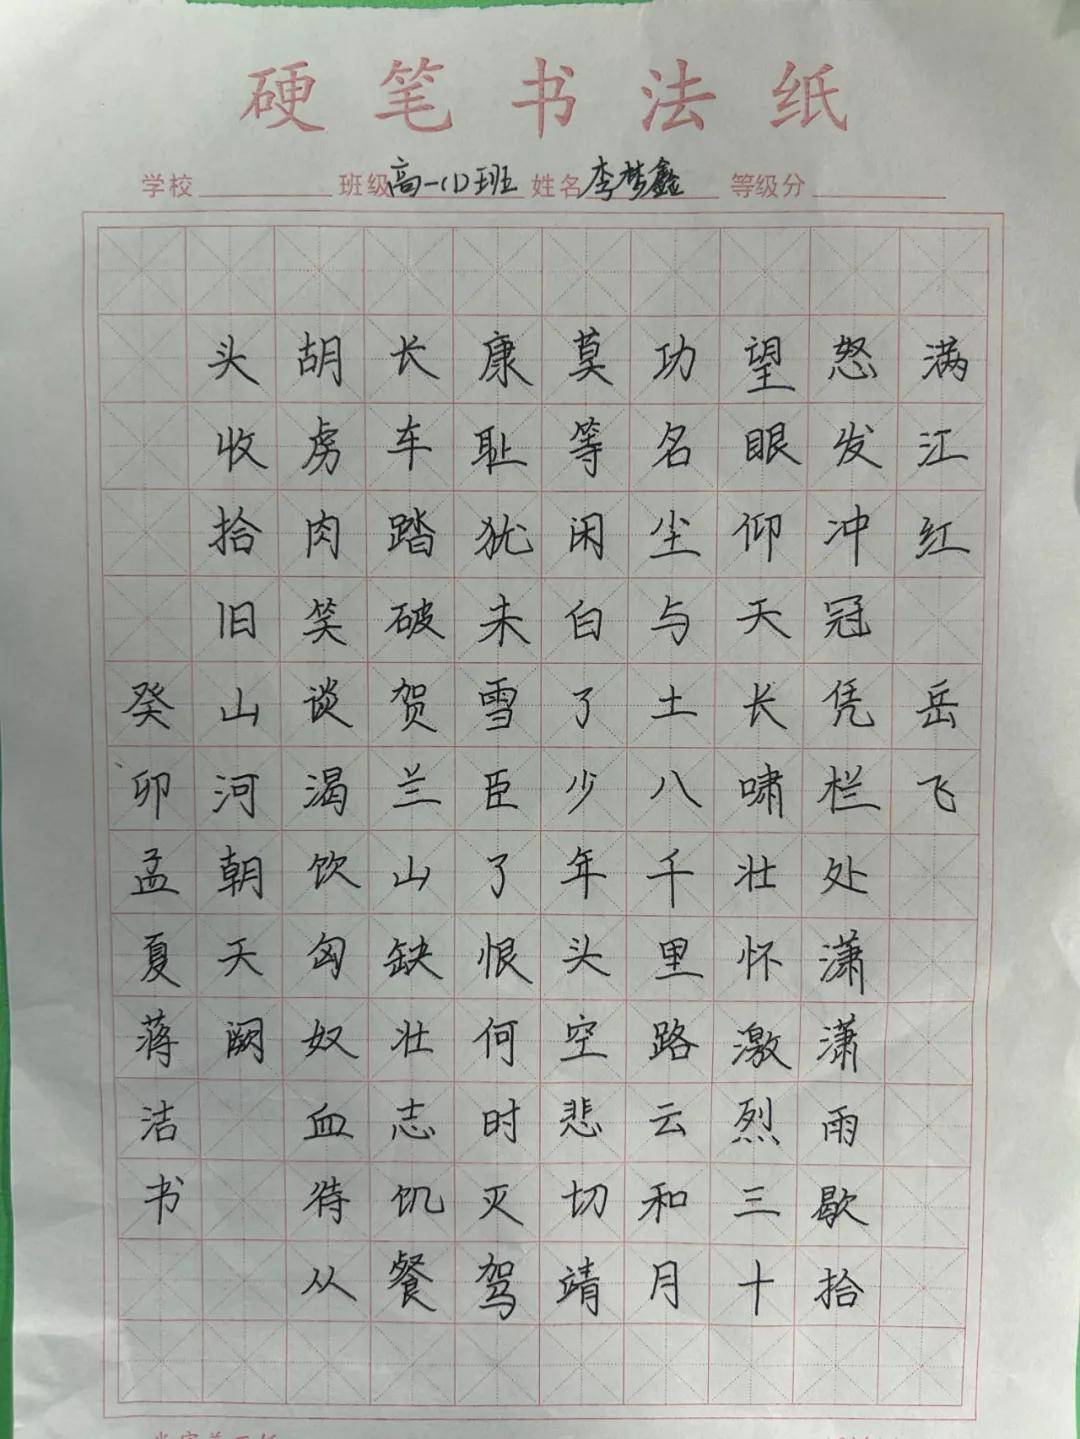 硬笔书法纸
学校 班级 高一(1)班 姓名 李梦鑫 等级分
满江红 岳飞
怒发冲冠凭栏处潇潇雨歇拾
望眼仰天长啸壮怀激烈三十
功名尘与土八千里路云和月
莫等闲白了少年头空悲切靖
康耻犹未雪臣了恨何时灭驾
长车踏破贺兰山缺壮志饥餐
胡虏肉笑谈渴饮匈奴血待从
头收拾旧山河朝天阙
癸卯孟夏蒋洁书